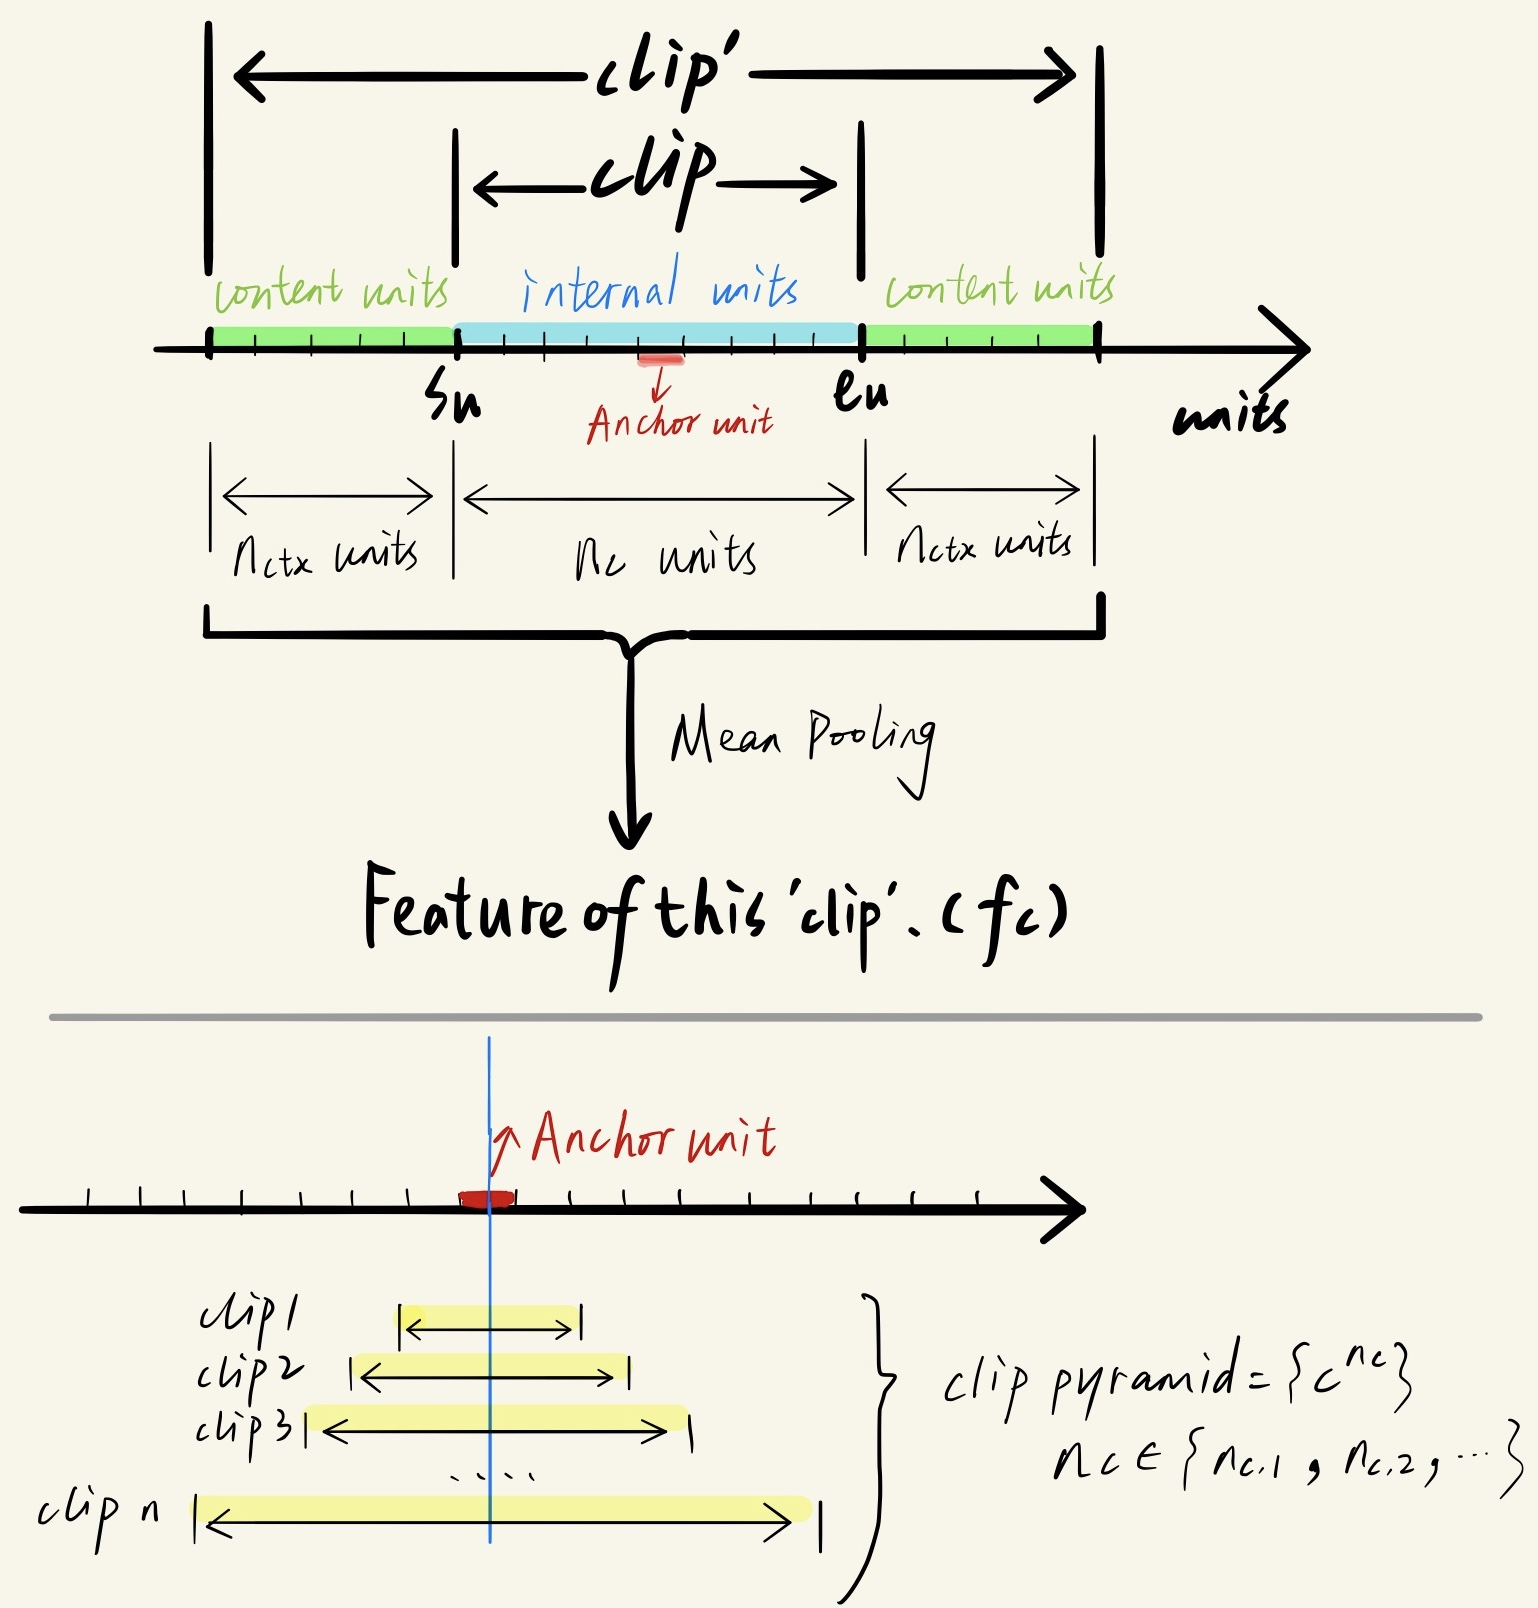 clip'
clip
content units internal units content units
Su eu
Anchor unit
units
nctx units nc units nctx units
Mean Pooling
Feature of this 'clip'. (fc)
Anchor unit
clip1
clip2
clip3
....
clip n
clip pyramid = {c^nc}
nc ∈ {nc,1 , nc,2, ...}